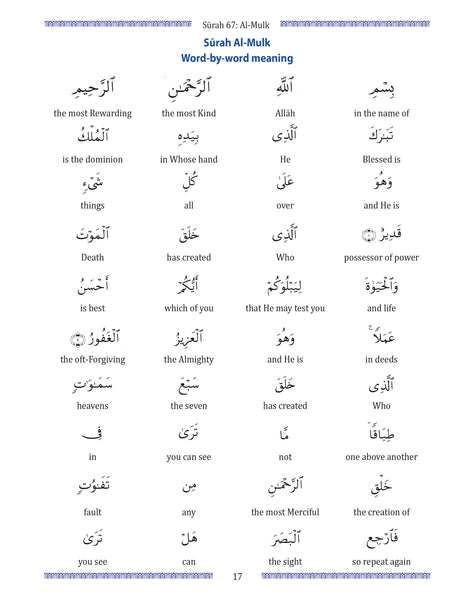 Sūrah 67: Al-Mulk
Sūrah Al-Mulk
Word-by-word meaning
بِسْمِ ٱللَّهِ ٱلرَّحْمَـٰنِ ٱلرَّحِيمِ
in the name of Allāh the most Kind the most Rewarding
تَبَـٰرَكَ ٱلَّذِى بِيَدِهِ ٱلْمُلْكُ
Blessed is He in Whose hand is the dominion
وَهُوَ عَلَىٰ كُلِّ شَىْءٍ
and He is over all things
قَدِيرٌ ۝١ ٱلَّذِى خَلَقَ ٱلْمَوْتَ
possessor of power Who has created Death
وَٱلْحَيَوٰةَ لِيَبْلُوَكُمْ أَيُّكُمْ أَحْسَنُ
and life that He may test you which of you is best
عَمَلًا ۚ وَهُوَ ٱلْعَزِيزُ ٱلْغَفُورُ ۝٢
in deeds and He is the Almighty the oft-Forgiving
ٱلَّذِى خَلَقَ سَبْعَ سَمَـٰوَٰتٍ
Who has created the seven heavens
طِبَاقًا ۖ مَّا تَرَىٰ فِى
one above another not you can see in
خَلْقِ ٱلرَّحْمَـٰنِ مِن تَفَـٰوُتٍ ۖ
the creation of the most Merciful any fault
فَٱرْجِعِ ٱلْبَصَرَ هَلْ تَرَىٰ
so repeat again the sight can you see
17